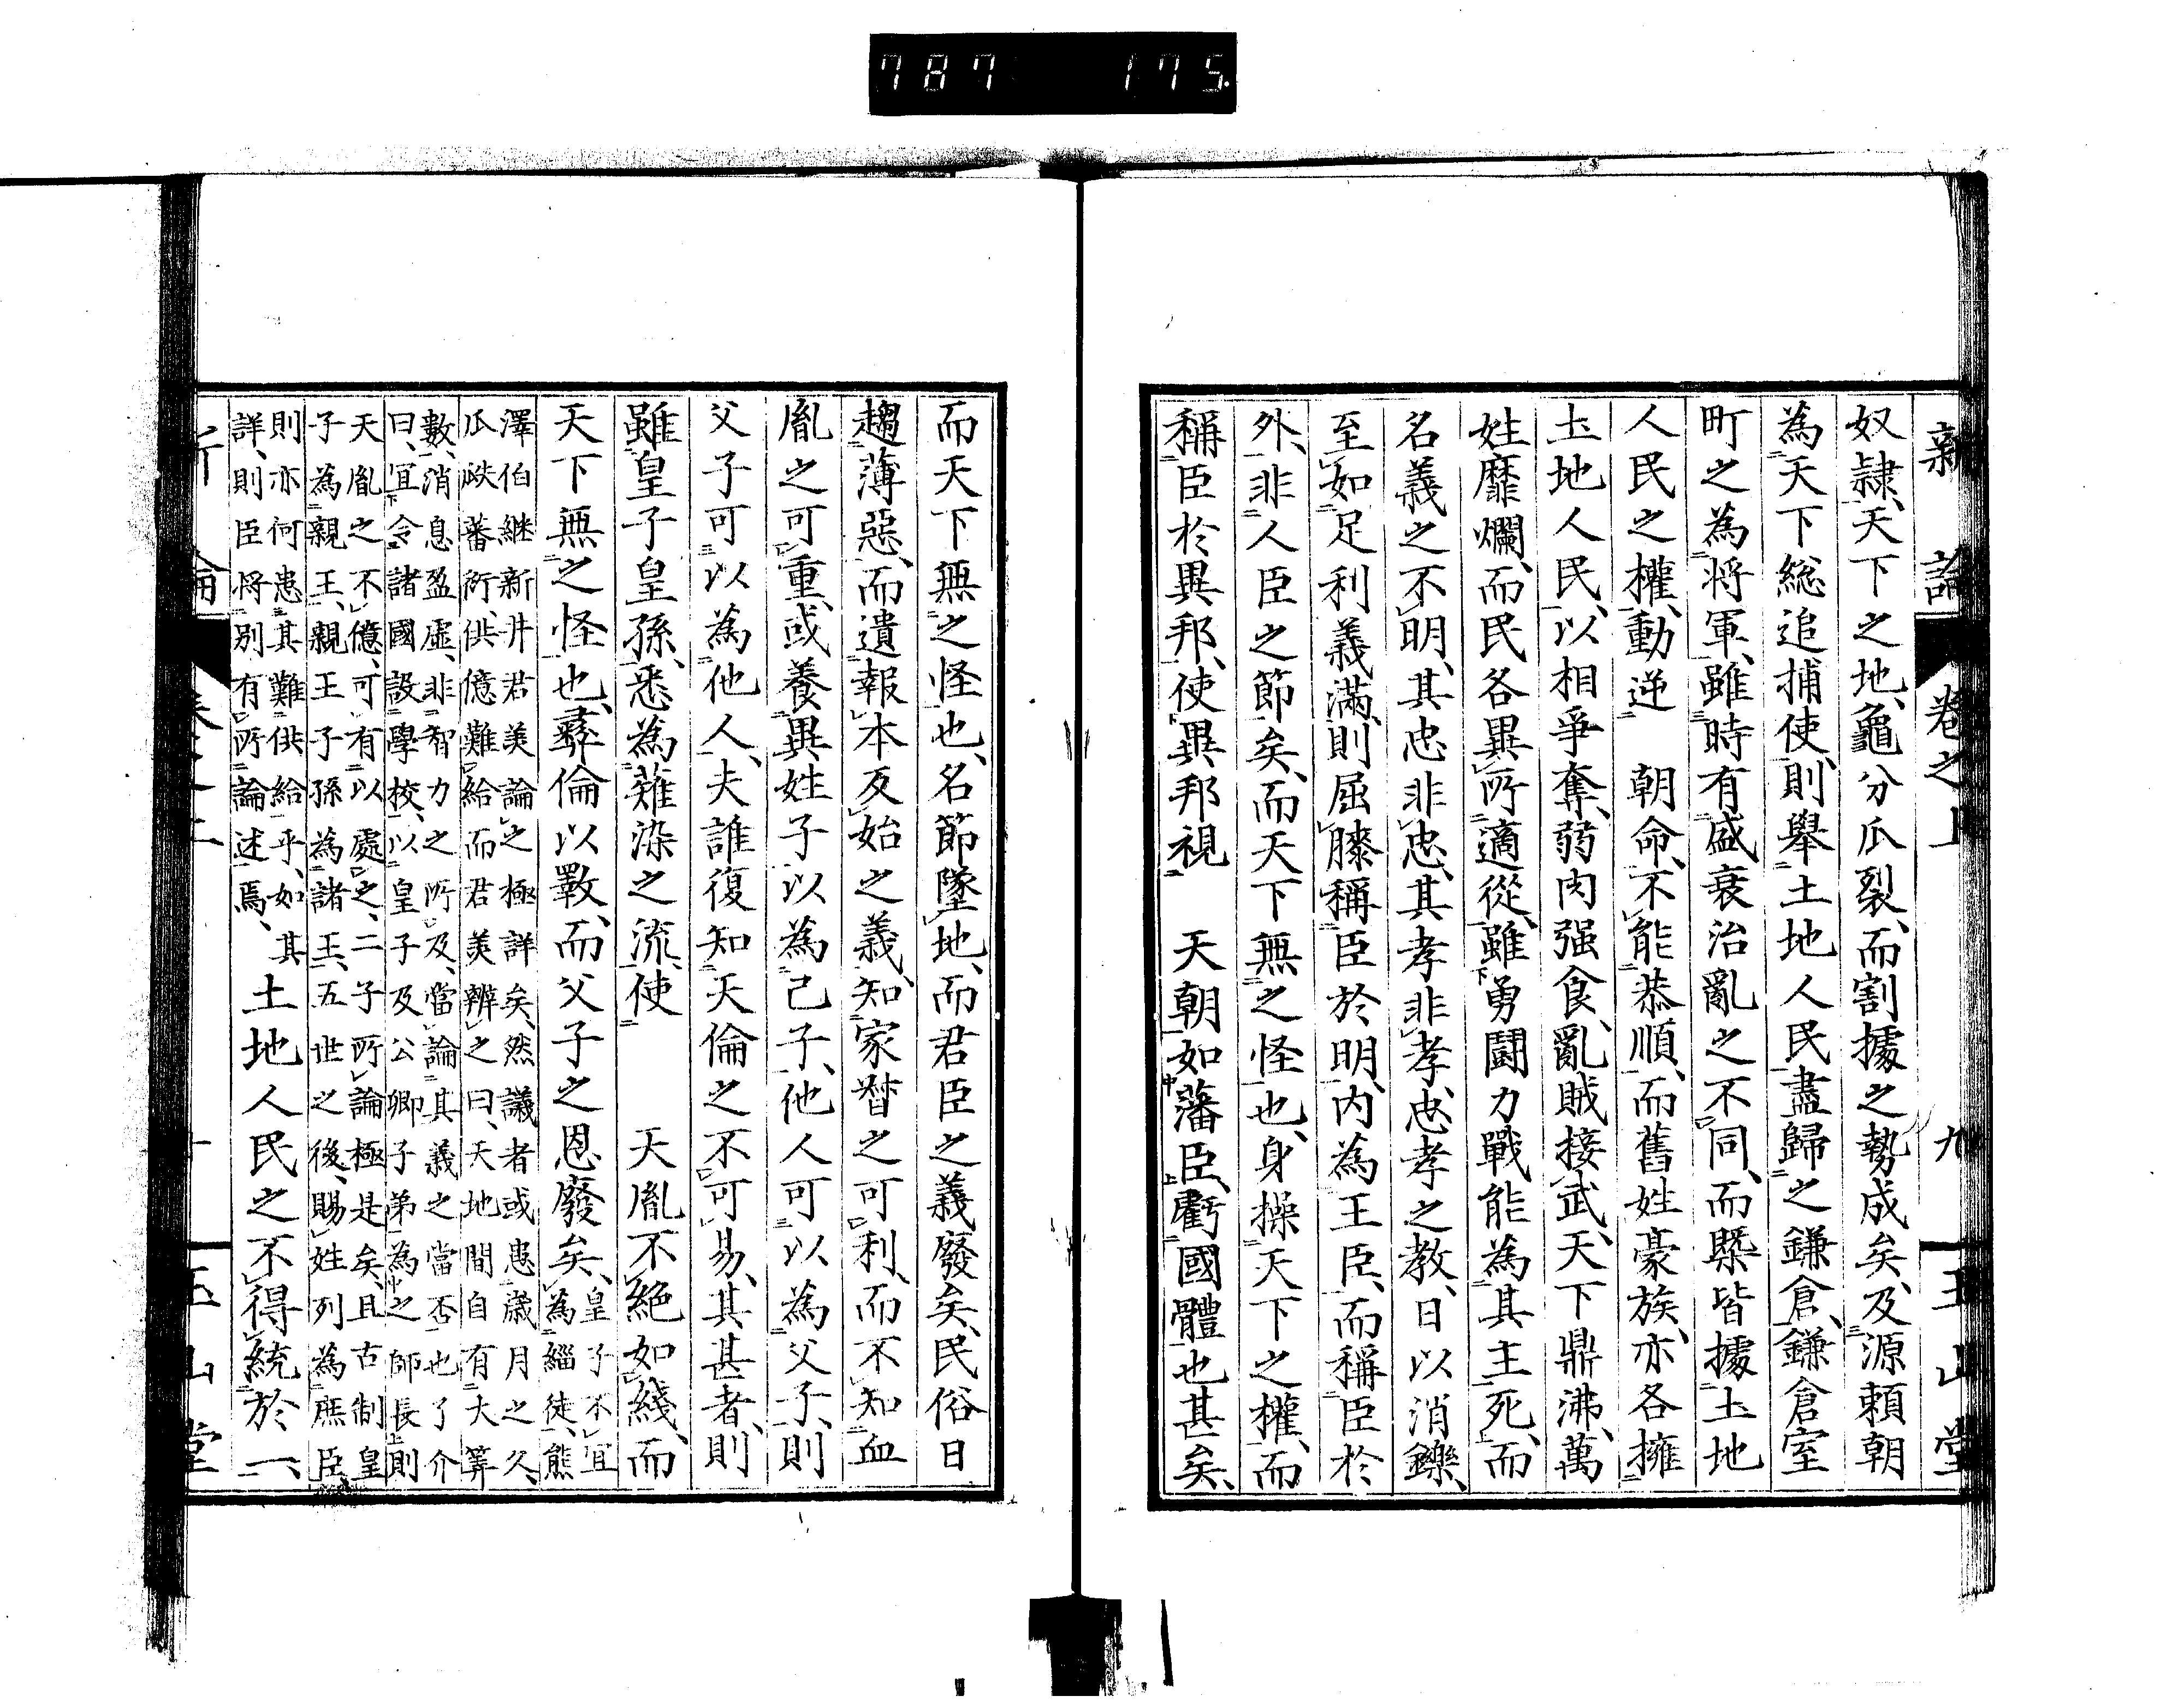 787 175
新論 卷之上 九 玉山堂
奴隷、天下之地、龜分瓜裂、而割據之勢成矣、及源賴朝
為天下総追捕使、則舉土地人民、盡歸之鎌倉、鎌倉室
町之為將軍、雖時有盛衰治亂之不同、而槩皆據土地
人民之權、動逆　朝命、不能恭順、而舊姓豪族、亦各擁
土地人民、以相爭奪、弱肉强食、亂賊接武、天下鼎沸、萬
姓靡爛、而民各異所適從、雖勇鬪力戰、能為其主死、而
名義之不明、其忠非忠、其孝非孝、忠孝之教、日以消鑠、
至如足利義滿、則屈膝稱臣於明、内為王臣、而稱臣於
外、非人臣之節矣、而天下無之怪也、身操天下之權、而
稱臣於異邦、使異邦視　天朝如藩臣、虧國體也甚矣、
而天下無之怪也、名節墜地、而君臣之義廢矣、民俗日
趨薄惡、而遺報本反始之義、知家督之可利、而不知血
胤之可重、或養異姓子以為己子、他人可以為父子、則
父子可以為他人、夫誰復知天倫之不可易、其甚者、則
雖皇子皇孫、悉為薙染之流、使　天胤不絕如綫、而
天下無之怪也、彝倫以斁、而父子之恩廢矣、皇子不宜
為緇徒、熊
澤伯継新井君美論之極詳矣、然議者或患歳月之久、
瓜瓞蕃衍、供億難給、而君美辨之曰、天地間自有大筭
數、消息盈虛、非智力之所及、當論其義之當否也、了介
曰、宜令諸國設學校、以皇子及公卿子弟為之師長、則
天胤之不億、可有以處之、二子所論極是矣、且古制皇
子為親王、親王子孫為諸王、五世之後、賜姓列為庶臣、
則亦何患其難供給乎、如其
詳、則臣将別有所論述焉、
土地人民之不得統於一、
玉山堂